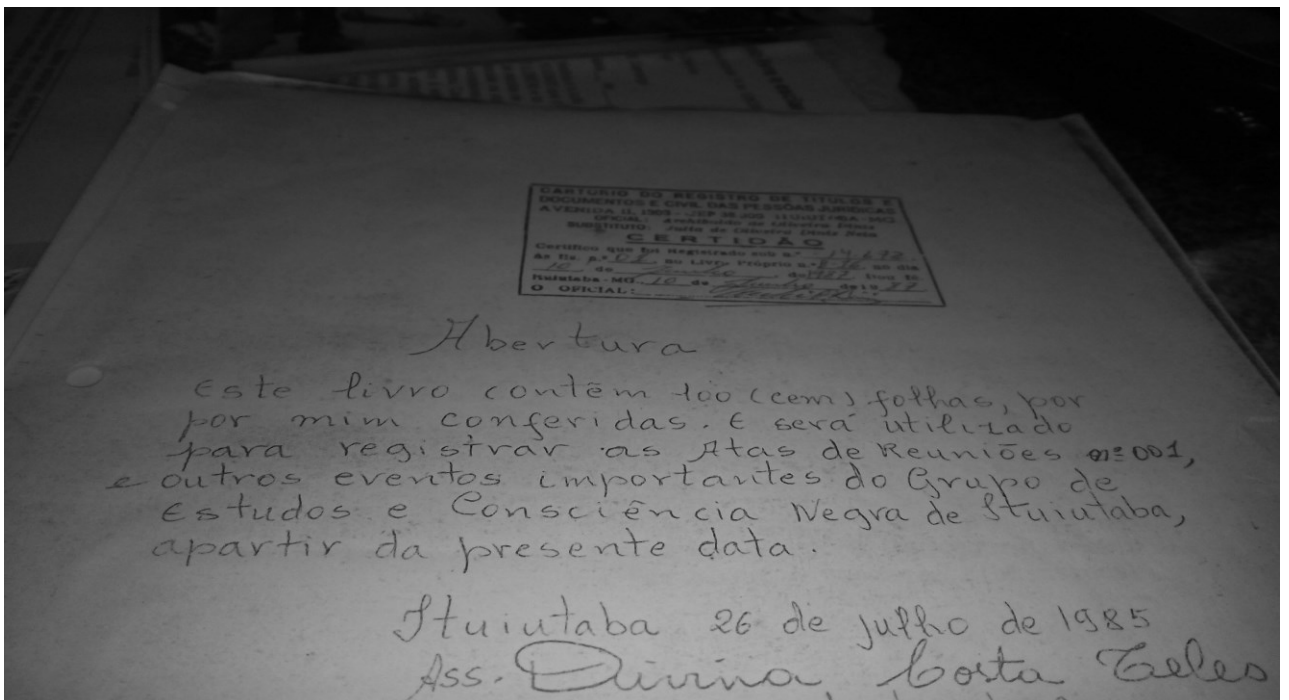 CARTÓRIO DO REGISTRO DE TITULOS E
DOCUMENTOS E CIVIL DAS PESSÔAS JURIDICAS
AVENIDA ITUIUTABA-MG
OFICIAL: de Oliveira Diniz
SUBSTITUTO: Julio de Oliveira Diniz Neto
CERTIDÃO
Certifico que foi Registrado sob n.º 14.692
às fls. n.º no Livro Próprio n.º no dia
10 de de Dou fé.
Ituiutaba-MG. 10 de de 19
O OFICIAL:
Abertura
Este livro contêm 100 (cem) folhas, por
por mim conferidas. E será utilizado
para registrar as Atas de Reuniões nº 001,
e outros eventos importantes do Grupo de
Estudos e Consciência Negra de Ituiutaba,
apartir da presente data.
Ituiutaba 26 de julho de 1985
Ass. Divina Costa Teles